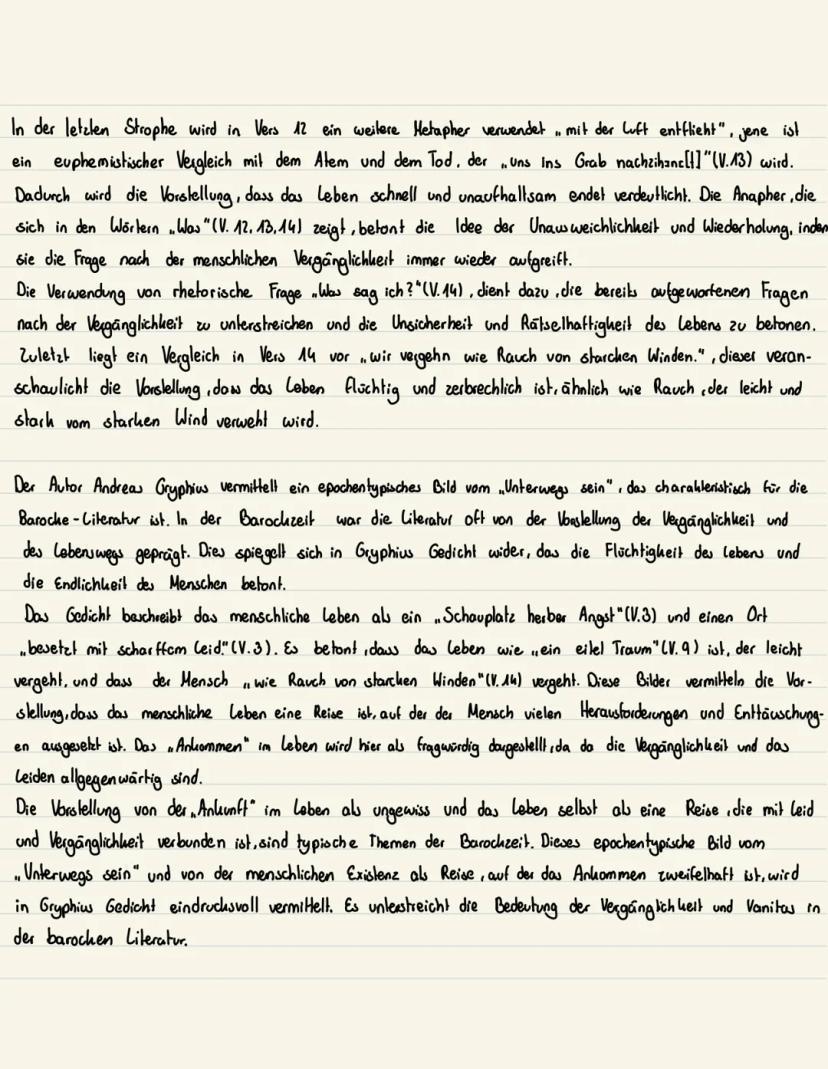 In der letzten Strophe wird in Vers 12 ein weitere Metapher verwendet „mit der Luft entflieht", jene ist
ein euphemistischer Vergleich mit dem Atem und dem Tod, der „uns ins Grab nachzihane[t]"(V.13) wird.
Dadurch wird die Vorstellung, dass das Leben schnell und unaufhaltsam endet verdeutlicht. Die Anapher, die
sich in den Wörtern „Was"(V. 12,13,14) zeigt, betont die Idee der Unausweichlichkeit und Wiederholung, indem
sie die Frage nach der menschlichen Vergänglichkeit immer wieder aufgreift.
Die Verwendung von rhetorische Frage „Was sag ich?"(V.14), dient dazu, die bereits aufgeworfenen Fragen
nach der Vergänglichkeit zu unterstreichen und die Unsicherheit und Rätselhaftigkeit des Lebens zu betonen.
Zuletzt liegt ein Vergleich in Vers 14 vor „wir vergehn wie Rauch von starcken Winden.", dieser veran-
schaulicht die Vorstellung, dass das Leben flüchtig und zerbrechlich ist, ähnlich wie Rauch, der leicht und
stark vom starken Wind verweht wird.
Der Autor Andreas Gryphius vermittelt ein epochentypisches Bild vom „Unterwegs sein", das charakteristisch für die
Barocke-Literatur ist. In der Barockzeit war die Literatur oft von der Vorstellung der Vergänglichkeit und
des Lebenswegs geprägt. Dies spiegelt sich in Gryphius Gedicht wider, das die Flüchtigkeit des Lebens und
die Endlichkeit des Menschen betont.
Das Gedicht beschreibt das menschliche Leben als ein „Schauplatz herber Angst"(V.3) und einen Ort
„besetzt mit scharffem Leid."(V.3). Es betont, dass das Leben wie „ein eitel Traum"(V.9) ist, der leicht
vergeht, und dass der Mensch „wie Rauch von starcken Winden"(V.14) vergeht. Diese Bilder vermitteln die Vor-
stellung, dass das menschliche Leben eine Reise ist, auf der der Mensch vielen Herausforderungen und Enttäuschung-
en ausgesetzt ist. Das „Ankommen" im Leben wird hier als fragwürdig dargestellt, da da die Vergänglichkeit und das
Leiden allgegenwärtig sind.
Die Vorstellung von der „Ankunft" im Leben als ungewiss und das Leben selbst als eine Reise, die mit Leid
und Vergänglichkeit verbunden ist, sind typische Themen der Barockzeit. Dieses epochentypische Bild vom
„Unterwegs sein" und von der menschlichen Existenz als Reise, auf der das Ankommen zweifelhaft ist, wird
in Gryphius Gedicht eindrucksvoll vermittelt. Es unterstreicht die Bedeutung der Vergänglichkeit und Vanitas in
der barocken Literatur.